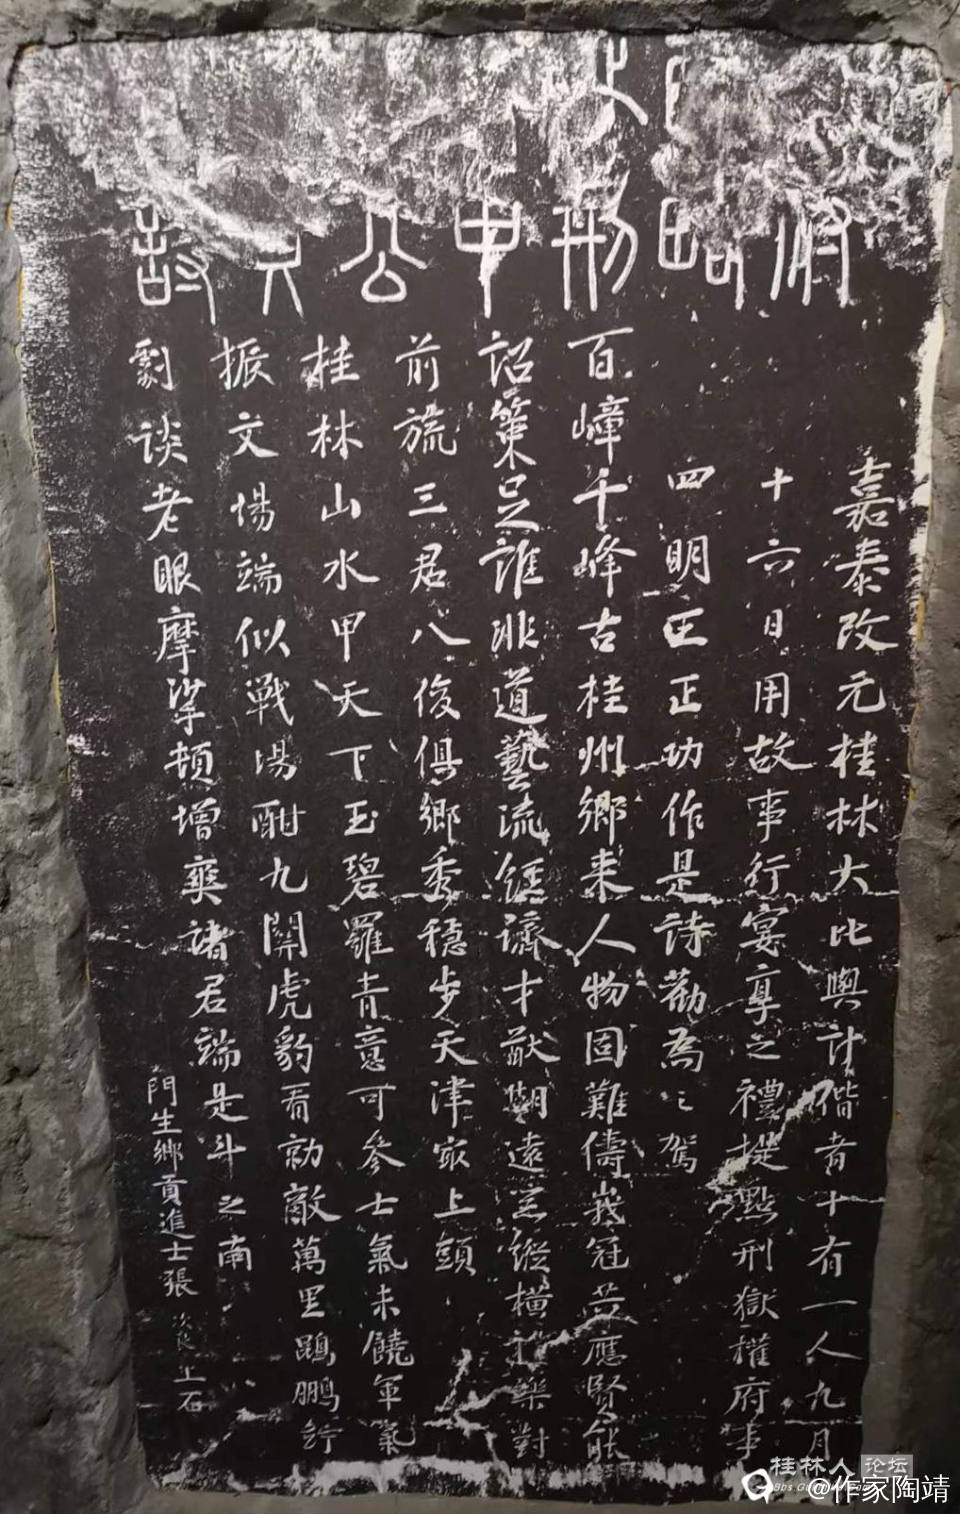 公
嘉泰改元桂林大比與計偕者十有一人九月
十六日用故事行宴享之禮提點刑獄權府事
四明王正功作是詩勸為之駕
百嶂千峰古桂州鄉来人物固難儔峩冠共應賢能
詔策足誰非道藝流經濟才猷期遠器縱橫禮樂對
前旒三君八俊俱鄉秀穩步天津最上頭
桂林山水甲天下玉碧羅青意可參士氣未饒軍氣
振文場端似戰場酣九關虎豹看勍敵萬里鵾鵬佇
劇談老眼摩挲頓增爽諸君端是斗之南
門生鄉貢進士張次良上石
桂林人论坛
@作家陶靖